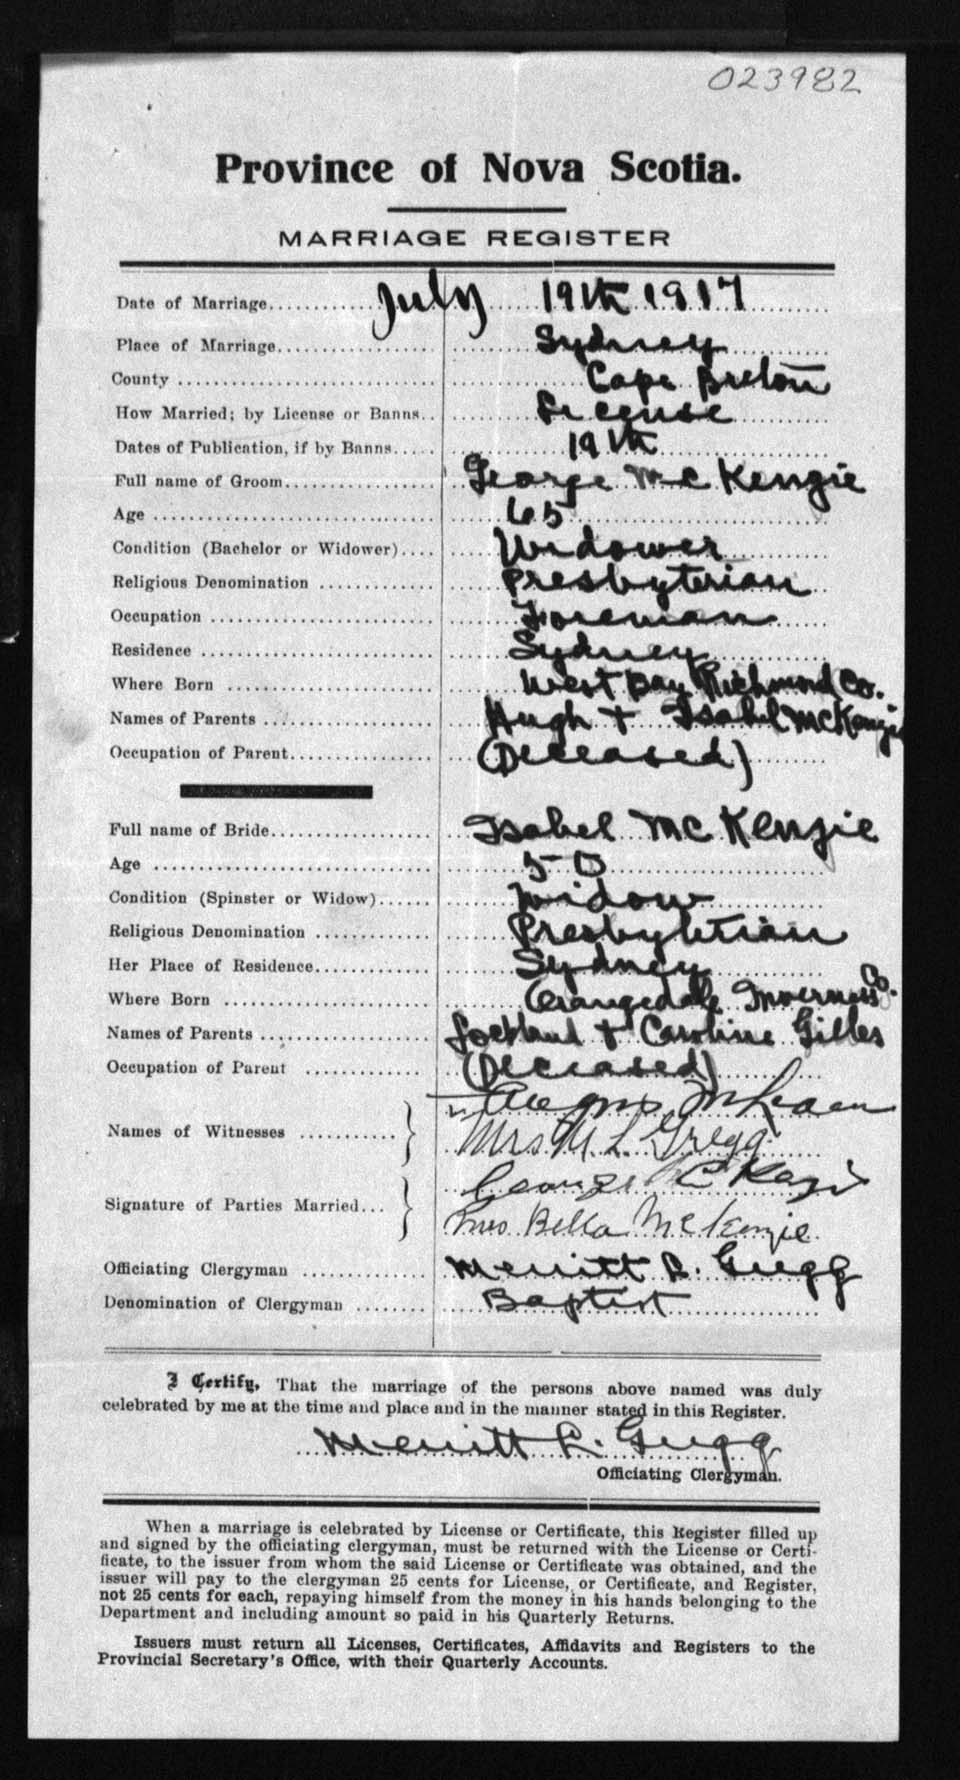 023982
Province of Nova Scotia.
MARRIAGE REGISTER
Date of Marriage July 19th 1917
Place of Marriage Sydney
County Cape Breton
How Married; by License or Banns License
Dates of Publication, if by Banns 19th
Full name of Groom George McKenzie
Age 65
Condition (Bachelor or Widower) Widower
Religious Denomination Presbyterian
Occupation Foreman
Residence Sydney
Where Born West Bay Richmond Co.
Names of Parents Hugh + Isabel McKenzie
Occupation of Parent (Deceased)
Full name of Bride Isabel McKenzie
Age 50
Condition (Spinster or Widow) Widow
Religious Denomination Presbyterian
Her Place of Residence Sydney
Where Born Orangedale Inverness Co.
Names of Parents + Caroline Gilles
Occupation of Parent (Deceased)
Names of Witnesses Angus McLean
Mrs M. L. Gregg
Signature of Parties Married George
Mrs Bella McKenzie
Officiating Clergyman Merritt L. Gregg
Denomination of Clergyman Baptist
I Certify, That the marriage of the persons above named was duly
celebrated by me at the time and place and in the manner stated in this Register.
Merritt L. Gregg
Officiating Clergyman.
When a marriage is celebrated by License or Certificate, this Register filled up
and signed by the officiating clergyman, must be returned with the License or Certi-
ficate, to the issuer from whom the said License or Certificate was obtained, and the
issuer will pay to the clergyman 25 cents for License, or Certificate, and Register,
not 25 cents for each, repaying himself from the money in his hands belonging to the
Department and including amount so paid in his Quarterly Returns.
Issuers must return all Licenses, Certificates, Affidavits and Registers to the
Provincial Secretary's Office, with their Quarterly Accounts.